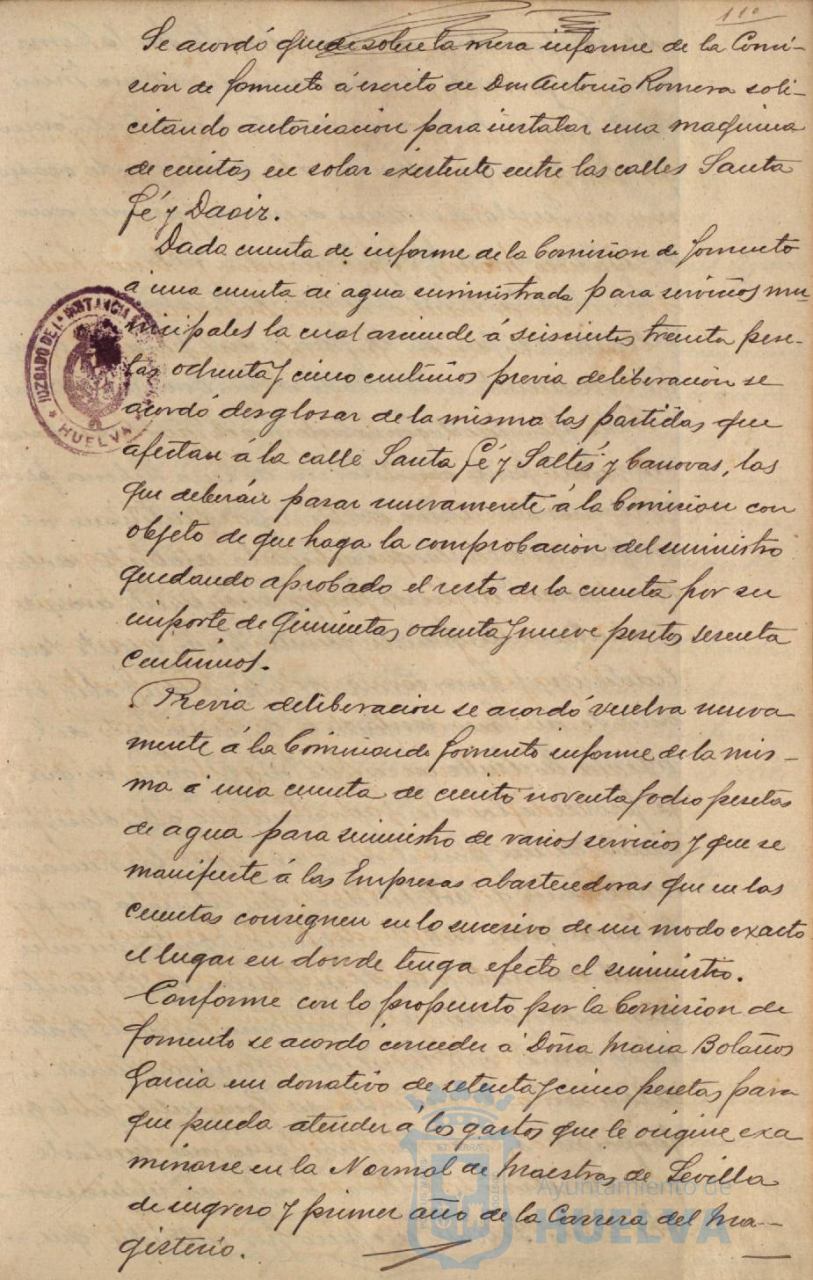 110
Se acordó quede sobre la mesa informe de la Comi-
sion de fomento á escrito de Don Antonio Romera soli-
citando autorizacion para instalar una maquina
de cunitas en solar existente entre las calles Santa
Fé y Daoiz.
Dada cuenta de informe de la Comision de fomento
á una cuenta de agua suministrada para servicios mu-
nicipales la cual asciende á seiscientos treinta pese-
tas ochenta y cinco centimos previa deliberacion se
acordó desglosar de la misma las partidas que
afectan á la calle Santa Fé y Saltés y Canovas, las
que deberán pasar nuevamente á la Comision con
objeto de que haga la comprobacion del suministro
quedando aprobado el resto de la cuenta por su
importe de quinientas ochenta y nueve pesetas sesenta
centimos.
Previa deliberacion se acordó vuelva nueva
mente á la Comision de fomento informe de la mis-
ma á una cuenta de ciento noventa y ocho pesetas
de agua para suministro de varios servicios y que se
manifieste á las Empresas abastecedoras que en las
cuentas consignen en lo sucesivo de un modo exacto
el lugar en donde tenga efecto el suministro.
Conforme con lo propuesto por la Comision de
fomento se acordó conceder á Doña Maria Bolaños
Garcia un donativo de setenta y cinco pesetas para
que pueda atender á los gastos que le origine exa
minarse en la Normal de Maestras de Sevilla
de ingreso y primer año de la Carrera del Ma-
gisterio.
JUZGADO DE 1ª INSTANCIA
HUELVA
Ayuntamiento de
HUELVA